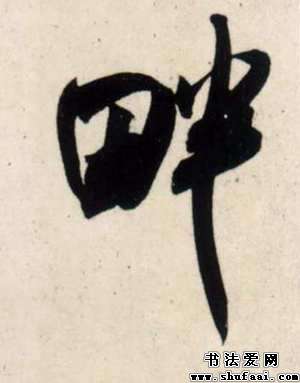 畔
书法爱网
www.shufaai.com